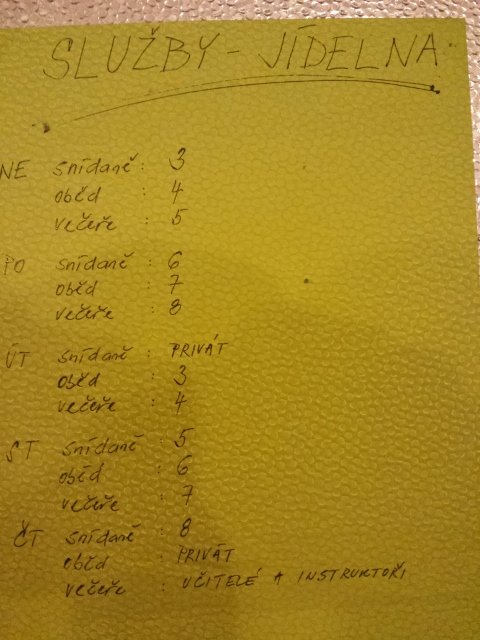 SLUŽBY - JÍDELNA
NE snídaně : 3
oběd : 4
večeře : 5
PO snídaně : 6
oběd : 7
večeře : 8
ÚT snídaně : PRIVÁT
oběd : 3
večeře : 4
ST snídaně : 5
oběd : 6
večeře : 7
ČT snídaně : 8
oběd : PRIVÁT
večeře : UČITELÉ A INSTRUKTOŘI